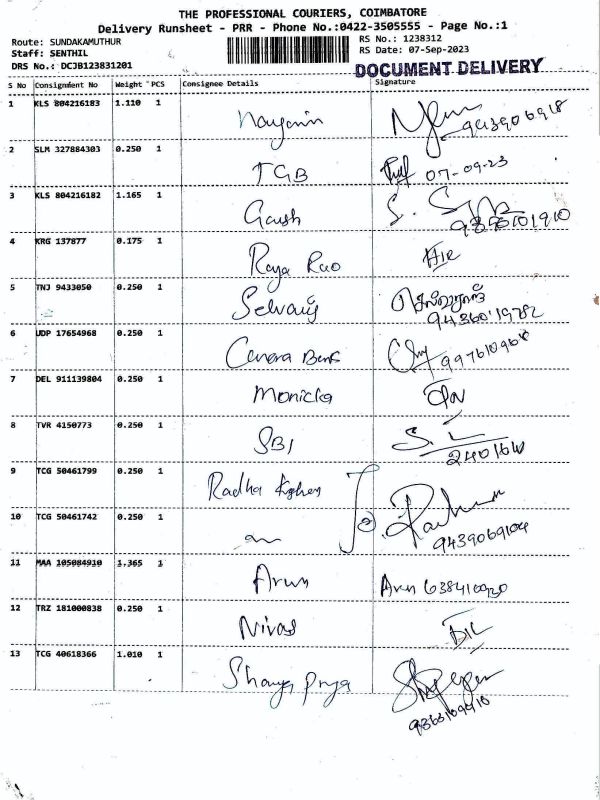 THE PROFESSIONAL COURIERS, COIMBATORE
Delivery Runsheet - PRR - Phone No.:0422-3505555 - Page No.:1
Route: SUNDAKAMUTHUR
RS No.: 1238312
Staff: SENTHIL
RS Date: 07-Sep-2023
DRS No.: DCJB123831201
DOCUMENT DELIVERY
S No Consignment No Weight PCS Consignee Details Signature
1 KLS 804216183 1.110 1
2 SLM 327884303 0.250 1 TGB 07-09-23
3 KLS 804216182 1.165 1
4 KRG 137877 0.175 1 Raja Rao
5 TNJ 9433050 0.250 1 செல்வராஜ்
6 UDP 17654968 0.250 1 Canara Bank
7 DEL 911139804 0.250 1 Monicka
8 TVR 4150773 0.250 1 SBI
9 TCG 50461799 0.250 1 Radha
10 TCG 50461742 0.250 1
9439069104
11 MAA 105084910 1.365 1 Arun Arun
12 TRZ 181000838 0.250 1 Nivas
13 TCG 40618366 1.010 1 Priya